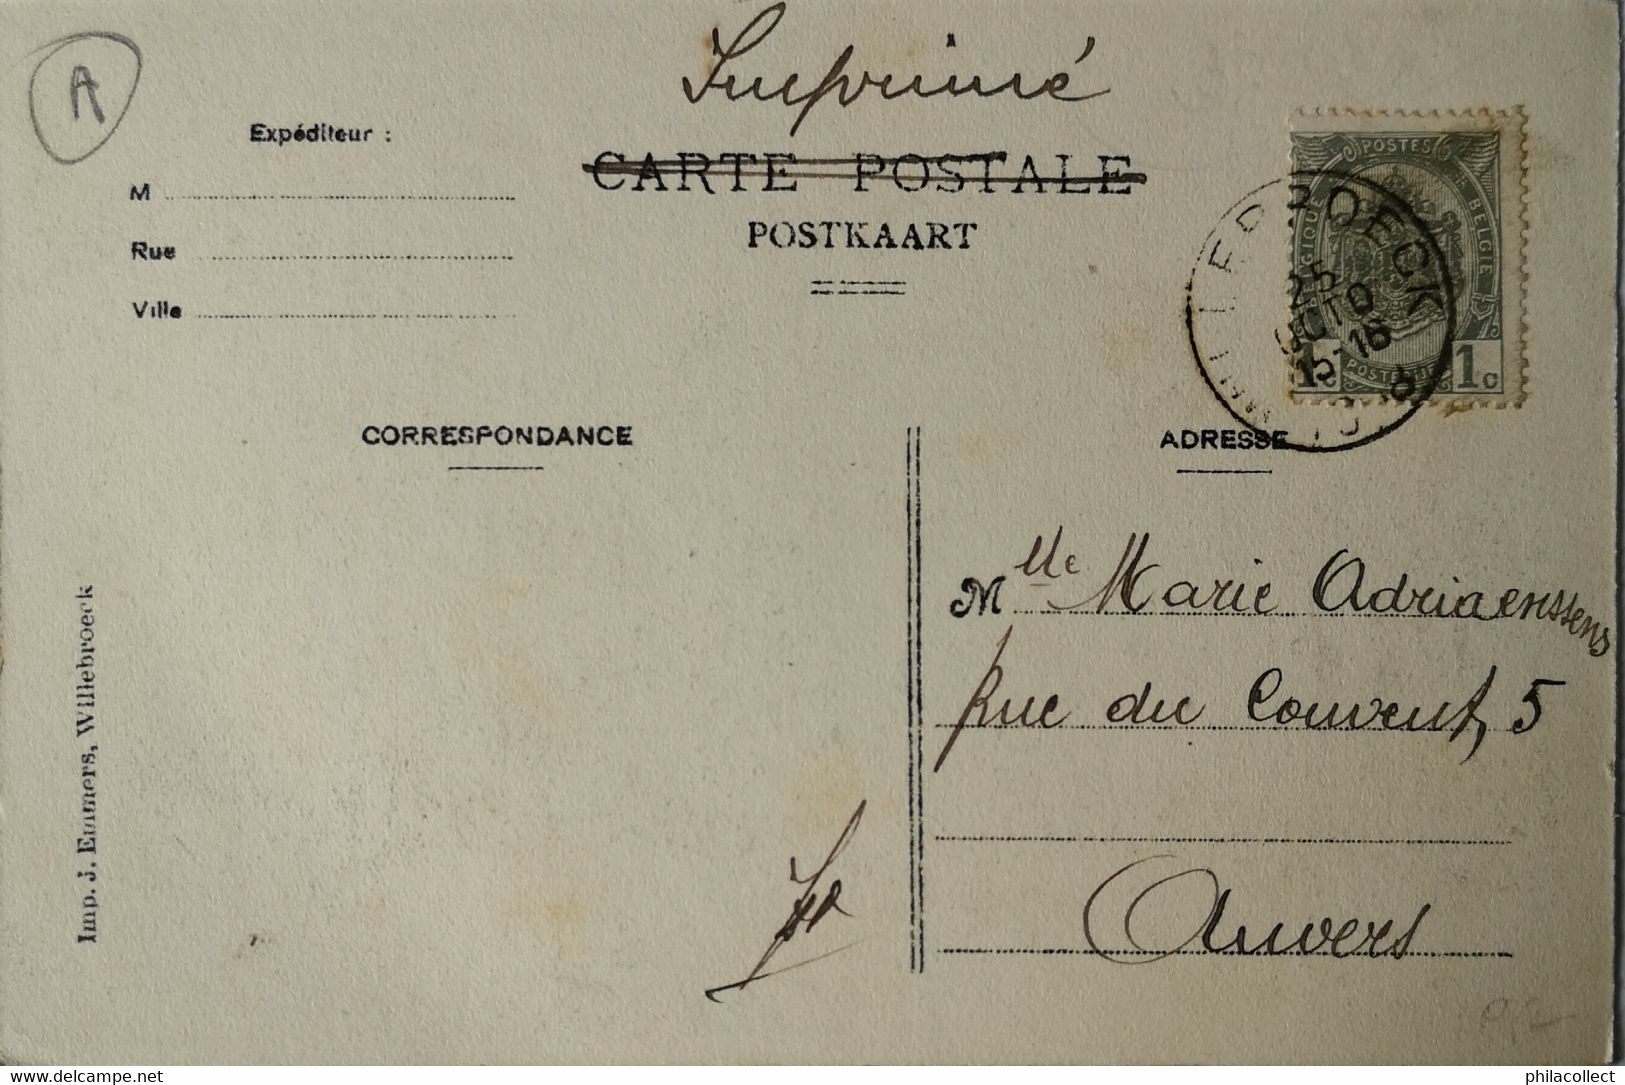 Imprimé
A
Expéditeur :
CARTE POSTALE
M
POSTKAART
Rue
Ville
POSTES
BELGIQUE BELGIE
POSTERIJEN
1c 1c
WILLEBROECK
25
OCTO
15-16
CORRESPONDANCE
ADRESSE
Mlle Marie Adriaenssens
Rue du Couvent, 5
Anvers
Imp. J. Emmers, Willebroeck
Delcampe.net
philacollect